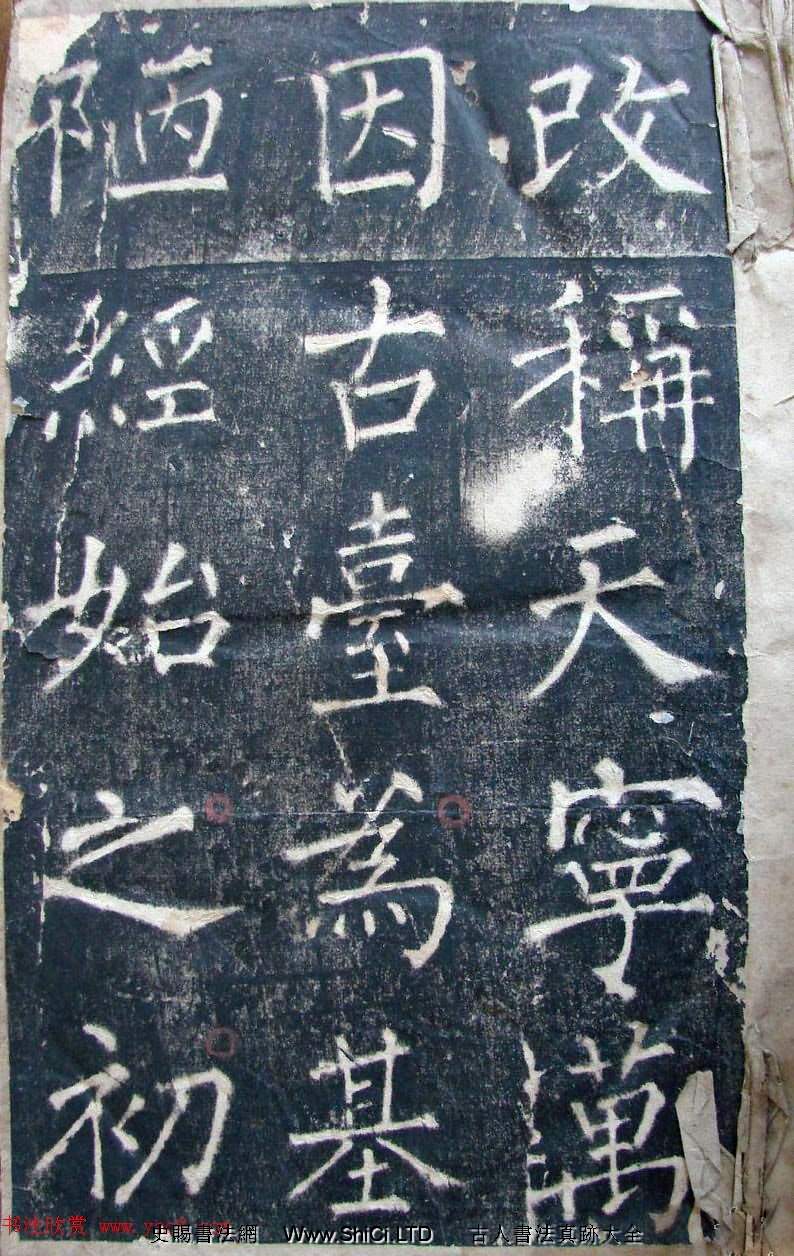 改稱天寧萬
因古臺為基
陋經始之初
书法欣赏 www.
史賜書法網 Www.ShiCi.LTD 古人書法真跡大全